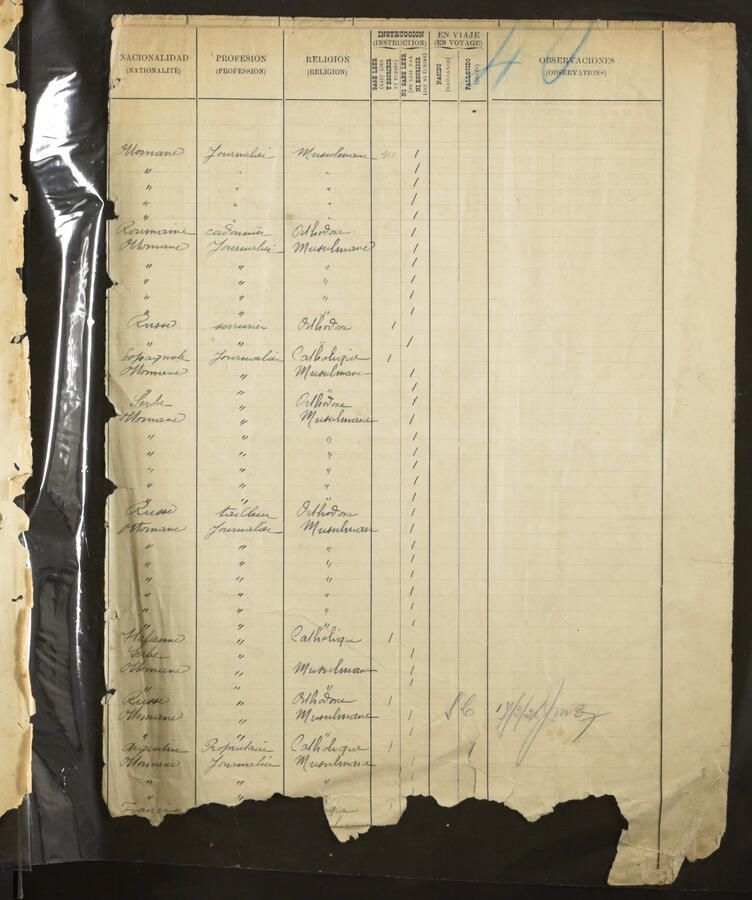 NACIONALIDAD (NATIONALITÉ) PROFESION (PROFESSION) RELIGION (RELIGION) INSTRUCCION (INSTRUCTION) SABE LEER Y ESCRIBIR NO SABE LEER NI ESCRIBIR EN VIAJE (EN VOYAGE) NACIDO (NAISSANCE) FALLECIDO OBSERVACIONES (OBSERVATIONS)
Ottomane Journalier Musulmane no /
" " " /
" " " /
" " " /
" " " /
Roumaine cordonnier Orthodoxe /
Ottomane Journalier Musulmane /
" " " /
" " " /
" " " /
" " " /
Russe serrurier Orthodoxe /
" " " /
Espagnole Journalier Catholique /
Ottomane " Musulmane /
" " " /
Serbe " Orthodoxe /
Ottomane " Musulmane /
" " " /
" " " /
" " " /
" " " /
" " " /
Russe tailleur Orthodoxe /
Ottomane Journalier Musulmane /
" " " /
" " " /
" " " /
" " " /
" " " /
" " " /
Italienne " Catholique /
Serbe " /
Ottomane " Musulmane /
" " /
Russe " Orthodoxe /
Ottomane " Musulmane /
" " " /
Argentine Propriétaire Catholique /
Ottomane Journalier Musulmane /
" " " /
" "